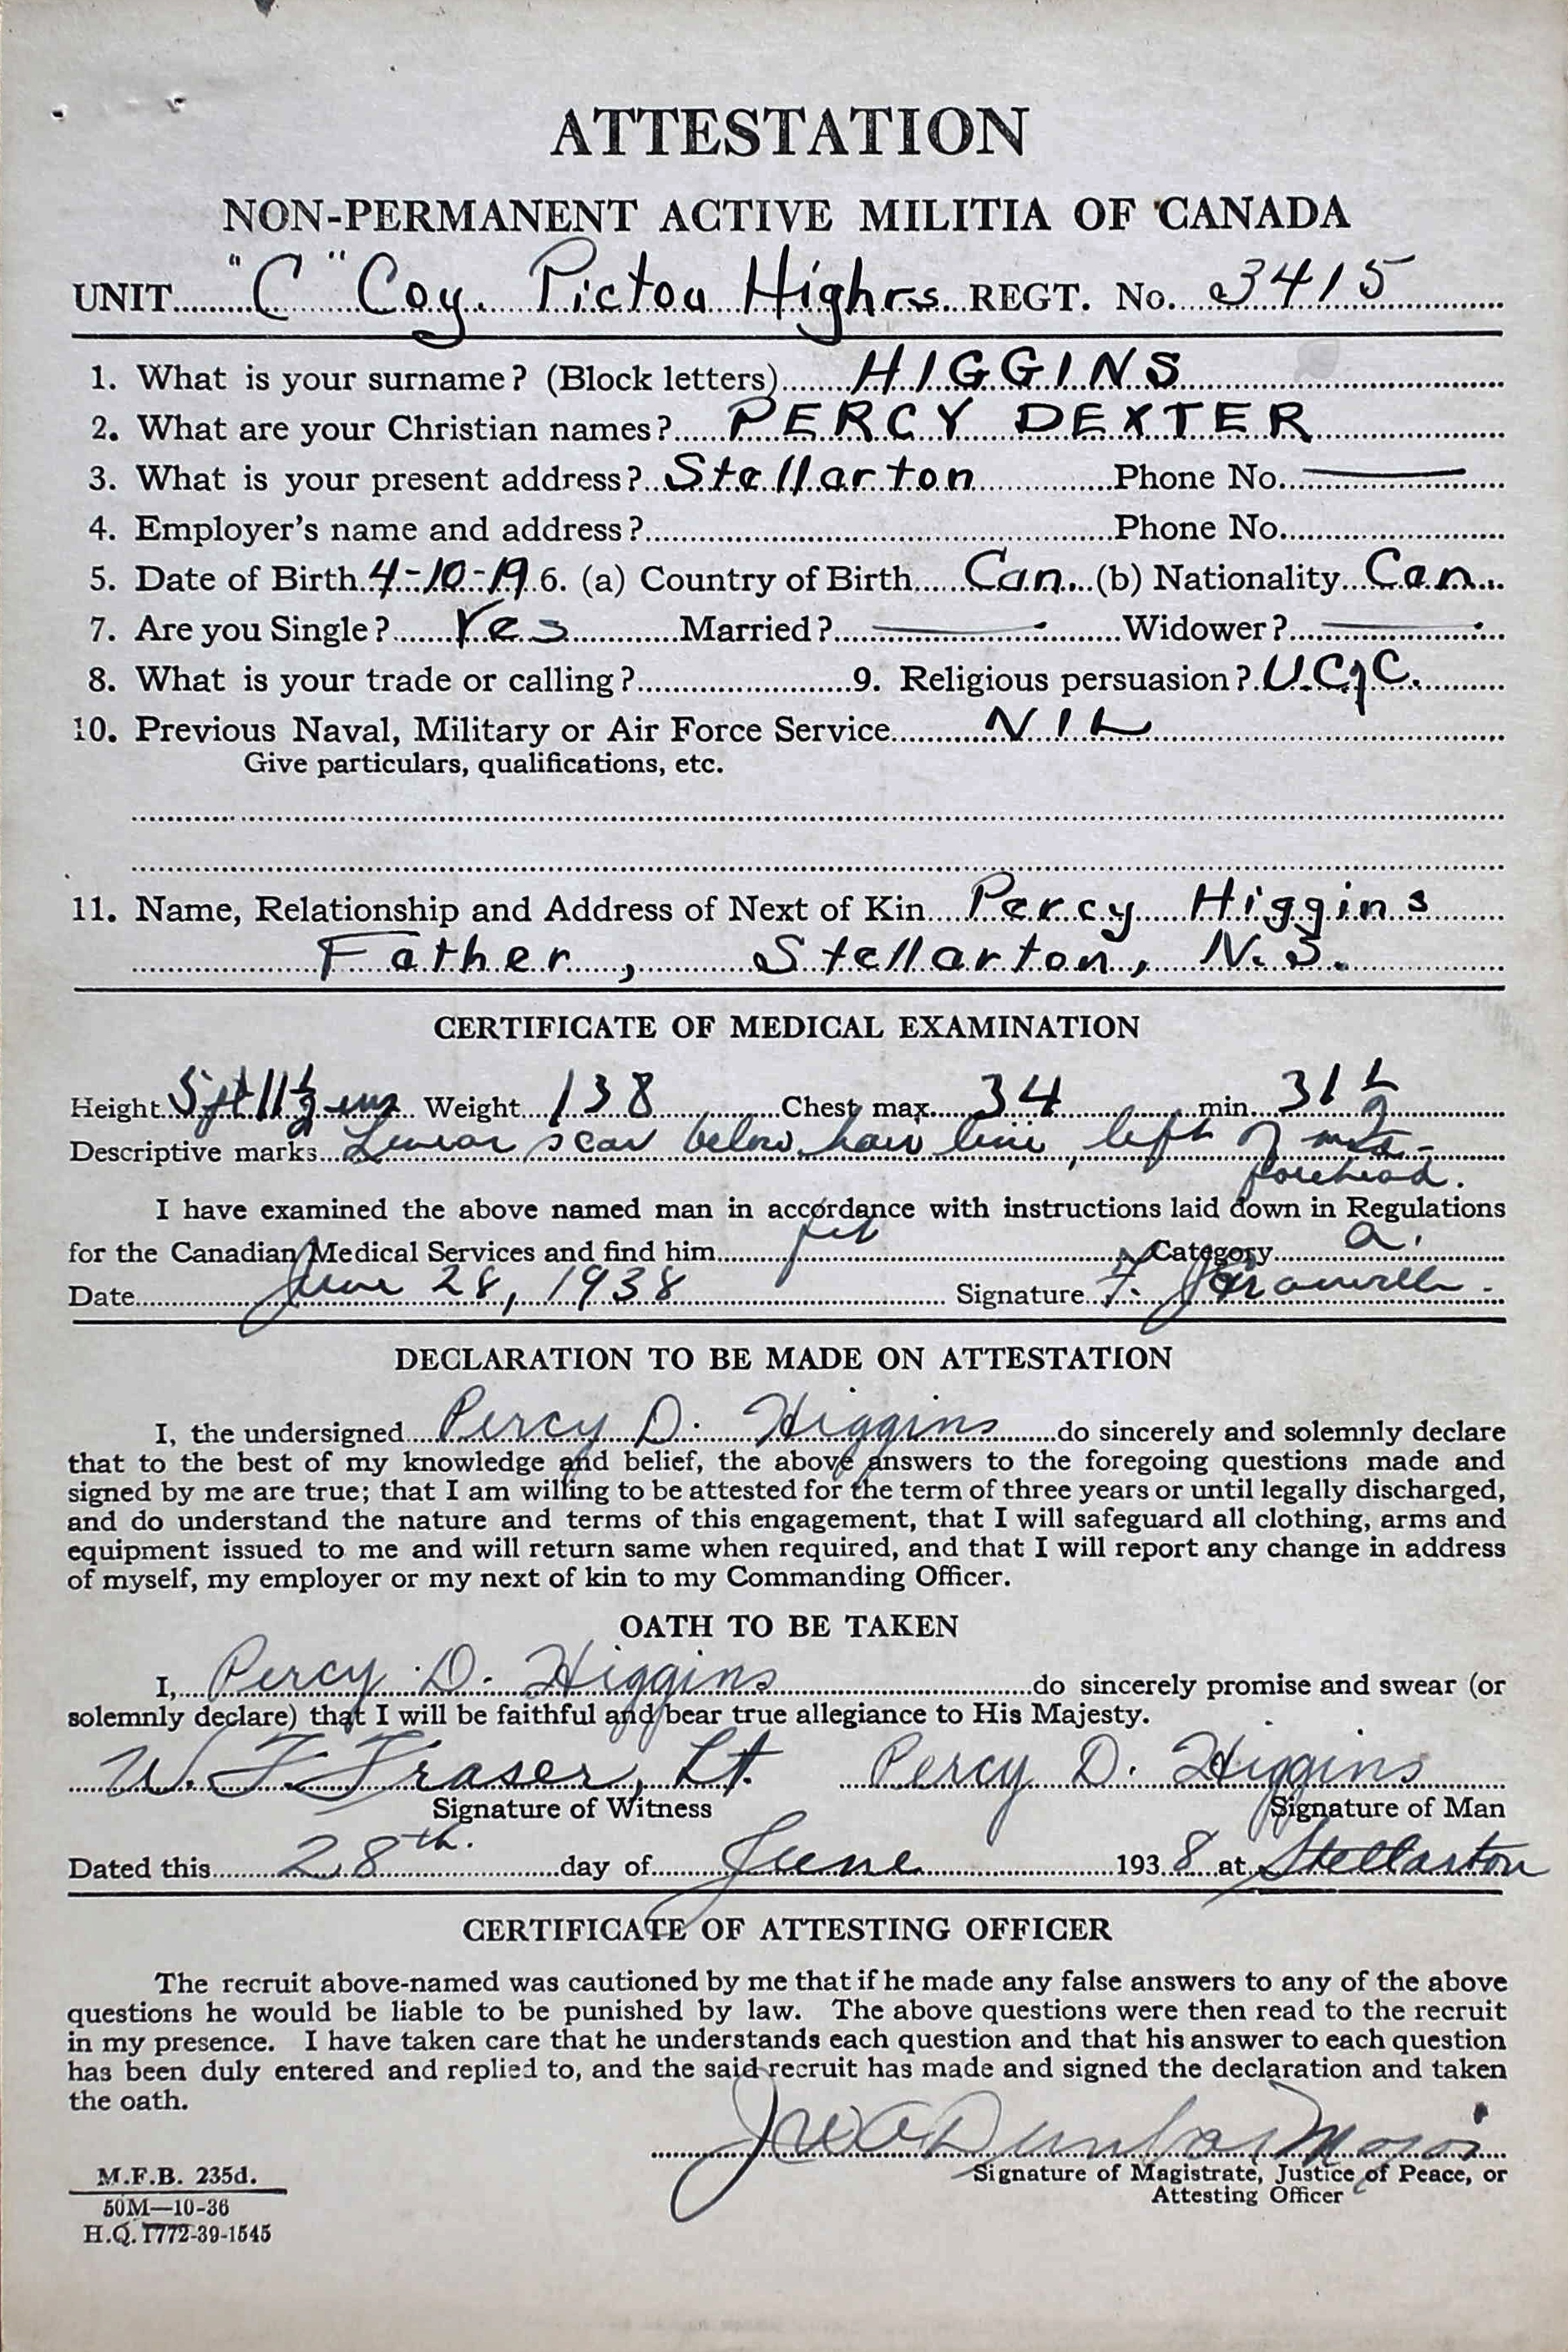 ATTESTATION
NON-PERMANENT ACTIVE MILITIA OF CANADA
UNIT "C" Coy. Pictou Highrs. REGT. No. 3415
1. What is your surname? (Block letters) HIGGINS
2. What are your Christian names? PERCY DEXTER
3. What is your present address? Stellarton Phone No. —
4. Employer's name and address? Phone No.
5. Date of Birth 4-10-19 6. (a) Country of Birth Can. (b) Nationality Can.
7. Are you Single? Yes Married? — Widower? —
8. What is your trade or calling? 9. Religious persuasion? U.C.of C.
10. Previous Naval, Military or Air Force Service NIL
Give particulars, qualifications, etc.
11. Name, Relationship and Address of Next of Kin Percy Higgins
Father, Stellarton, N.S.
CERTIFICATE OF MEDICAL EXAMINATION
Height 5ft 11½ ins Weight 138 Chest max. 34 min. 31½
Descriptive marks Linear scar below hair line, left of
forehead.
I have examined the above named man in accordance with instructions laid down in Regulations
for the Canadian Medical Services and find him fit Category a.
Date June 28, 1938 Signature
DECLARATION TO BE MADE ON ATTESTATION
I, the undersigned Percy D. Higgins do sincerely and solemnly declare
that to the best of my knowledge and belief, the above answers to the foregoing questions made and
signed by me are true; that I am willing to be attested for the term of three years or until legally discharged,
and do understand the nature and terms of this engagement, that I will safeguard all clothing, arms and
equipment issued to me and will return same when required, and that I will report any change in address
of myself, my employer or my next of kin to my Commanding Officer.
OATH TO BE TAKEN
I, Percy D. Higgins do sincerely promise and swear (or
solemnly declare) that I will be faithful and bear true allegiance to His Majesty.
W. F. Fraser, Lt. Percy D. Higgins
Signature of Witness Signature of Man
Dated this 28th. day of June 1938 at Stellarton
CERTIFICATE OF ATTESTING OFFICER
The recruit above-named was cautioned by me that if he made any false answers to any of the above
questions he would be liable to be punished by law. The above questions were then read to the recruit
in my presence. I have taken care that he understands each question and that his answer to each question
has been duly entered and replied to, and the said recruit has made and signed the declaration and taken
the oath.
Dunbar Major
Signature of Magistrate, Justice of Peace, or
Attesting Officer
M.F.B. 235d.
50M—10-36
H.Q. 1772-39-1545